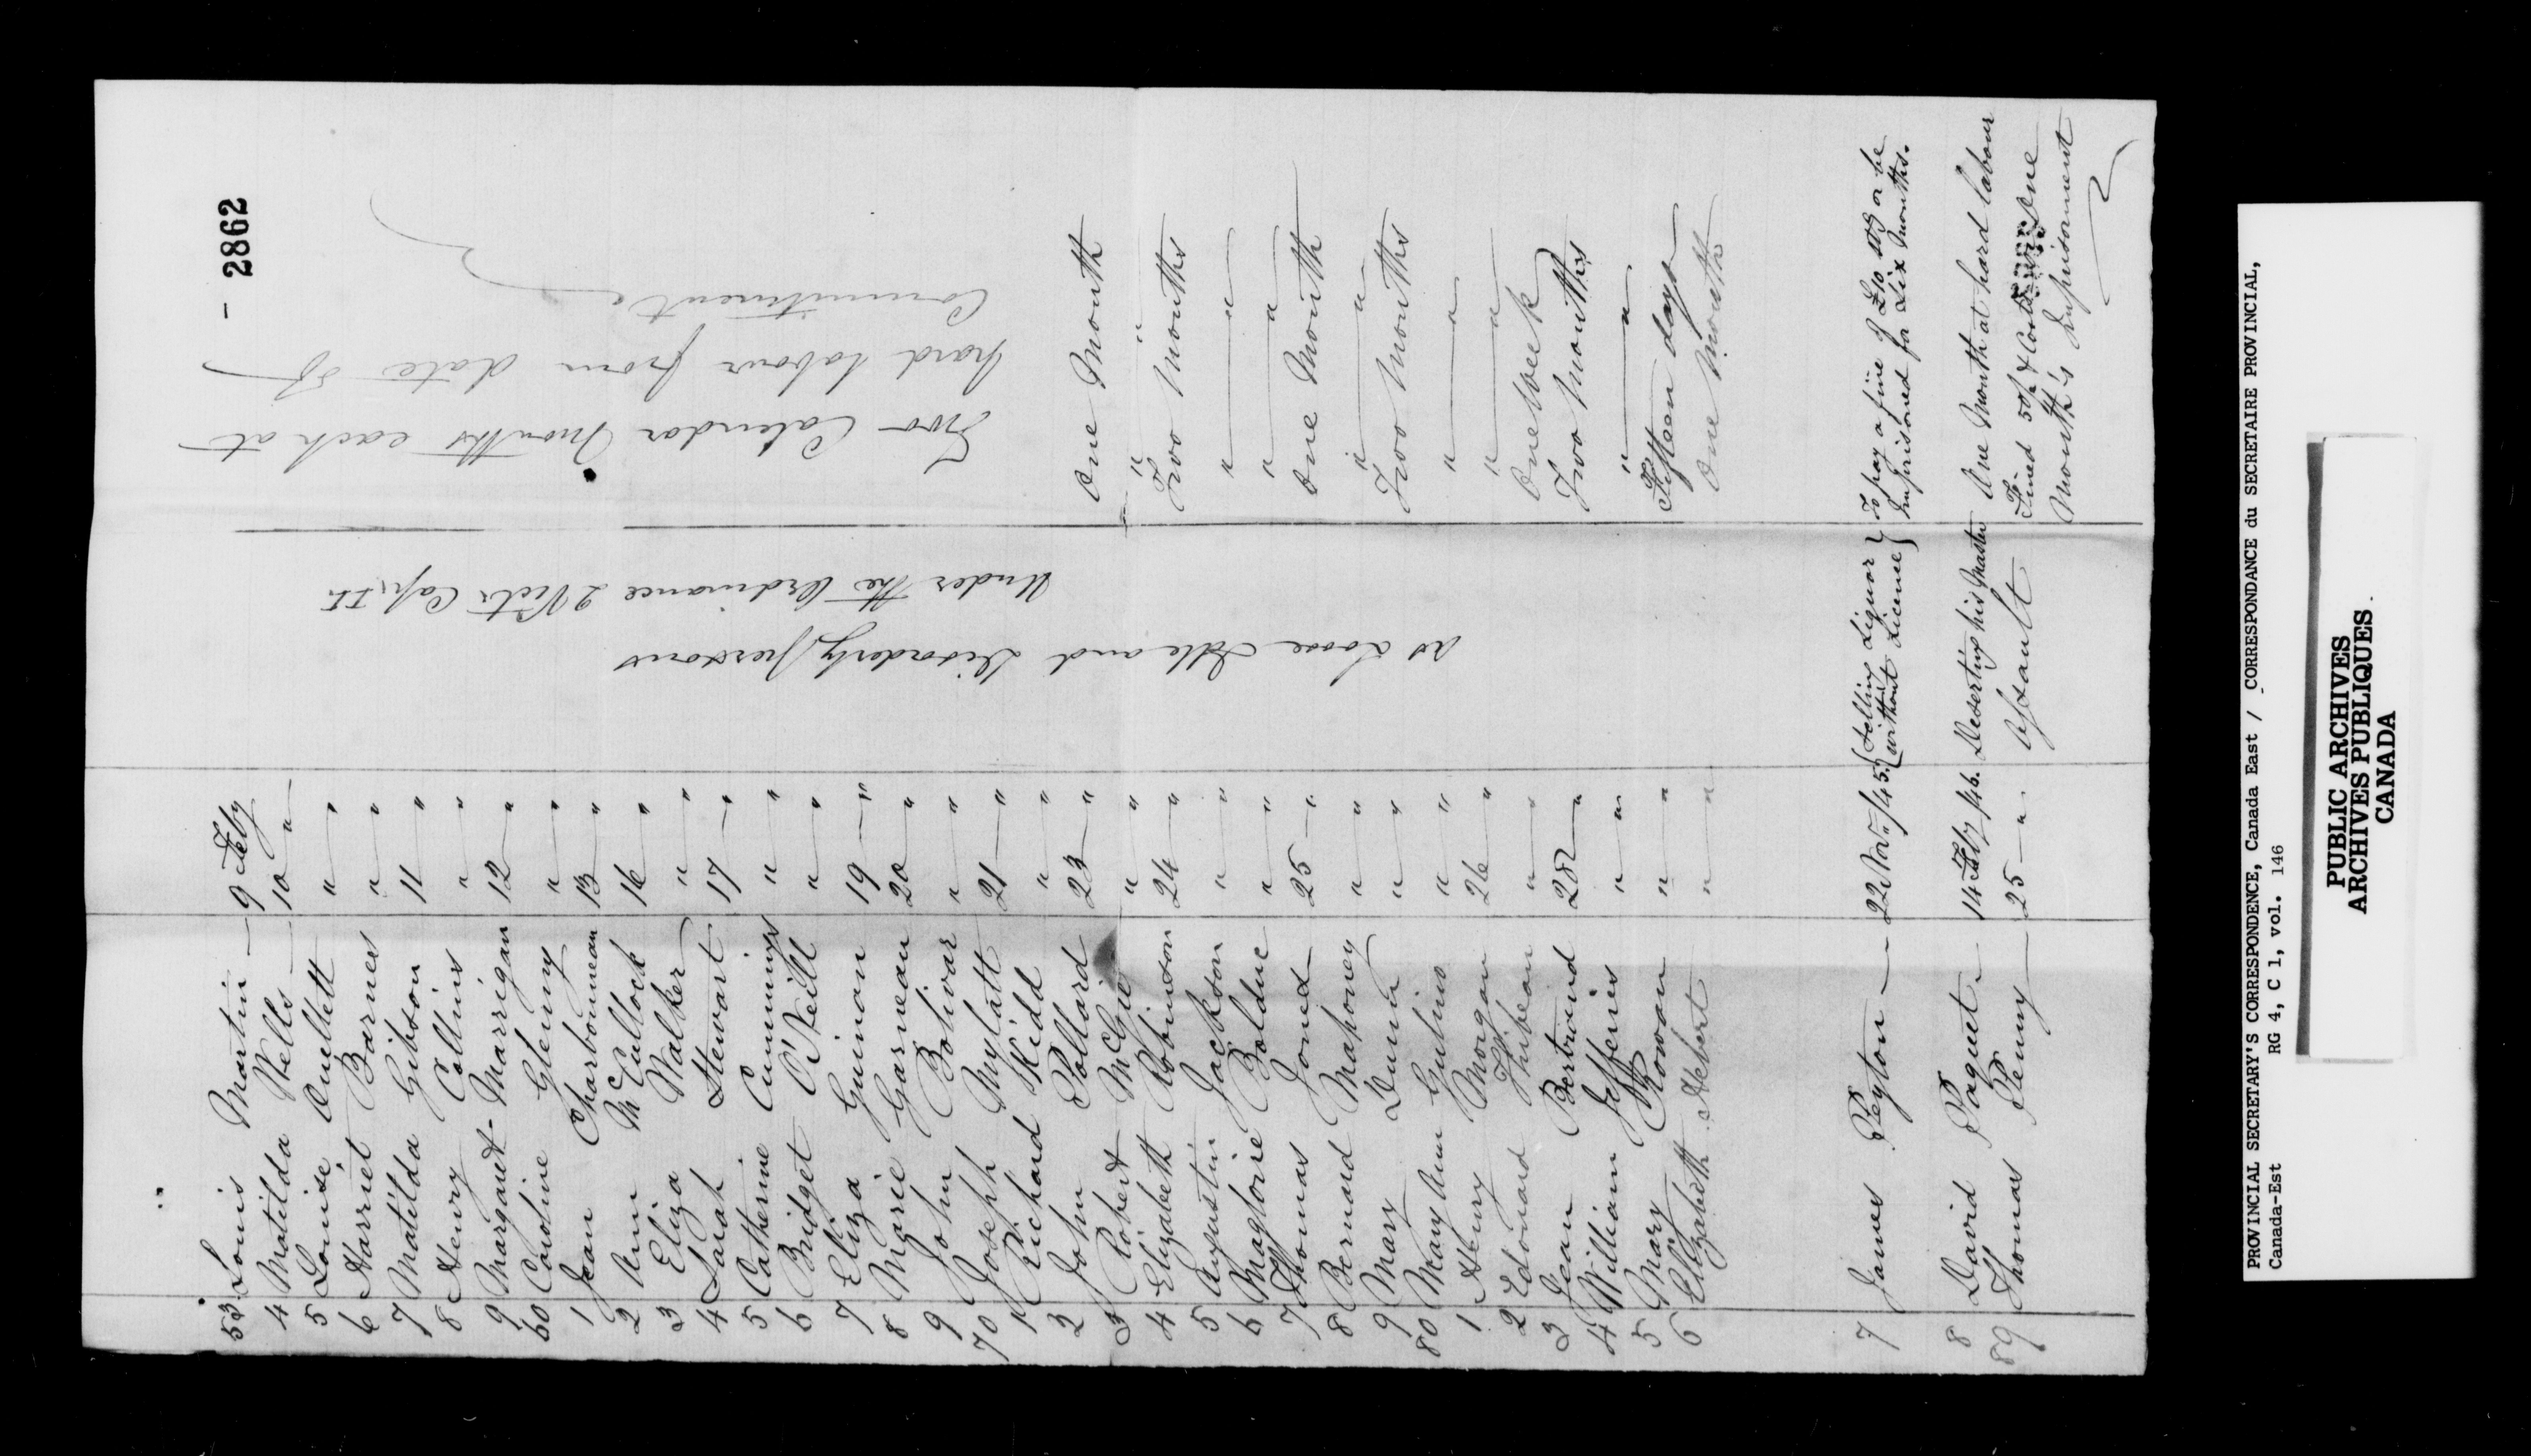 - 2862
53 Louis Martin — 9 Feby
4 Matilda Wells — 10 "
5 Louise Ouellett " "
6 Harriet Barnes " "
7 Matilda Gibson 11 "
8 Henry Collins " "
9 Margaret Marrigan 12 "
60 Caroline Glenny " "
1 Jean Charbonneau 13 "
2 Ann McCullock 16 "
3 Eliza Walker " "
4 Sarah Stewart 17 "
5 Catherine Cummings " "
6 Bridget O'Neill " "
7 Eliza Guinan 19 "
8 Marie Garneau 20 "
9 John Bolivar " "
70 Joseph Mylatt 21 "
1 Richard Kidd " "
2 John Pollard 23 "
3 Robert McGie " "
4 Elizabeth Robinson 24 "
5 Augustin Jackson " "
6 Magloire Bolduc " "
7 Thomas Jones 25 "
8 Bernard Mahoney " "
9 Mary Dunn " "
80 Mary Ann " "
1 Henry Morgan 26 "
2 Edouard " "
3 Jean Bertrand 28 "
4 William Jefferies " "
5 Mary Rowan " "
6 Elizabeth Hebert " "
As Loose Idle and Disorderly persons
Under the Ordinance 2 Vict. Cap. II
Two Calendar Months each at
hard labour from date of
Commitment
One Month
" "
Two Months
" "
" "
One Month
" "
Two Months
" "
" "
One Week
Two Months
" "
Fifteen days
One Month
7 James Peyton — 22 Novr /45. { Selling Liquor } To pay a fine of £10 or be
without Licence } Imprisoned for Six Months.
8 David Paquet — 14 Feby /46. Deserting his Master One Month at hard labour
89 Thomas Penny — 25 — " Assault Fined 50/ & Costs or One
Month's Imprisonment
PROVINCIAL SECRETARY'S CORRESPONDENCE, Canada East / CORRESPONDANCE du SECRETAIRE PROVINCIAL,
Canada-Est RG 4, C 1, vol. 146
PUBLIC ARCHIVES
ARCHIVES PUBLIQUES
CANADA